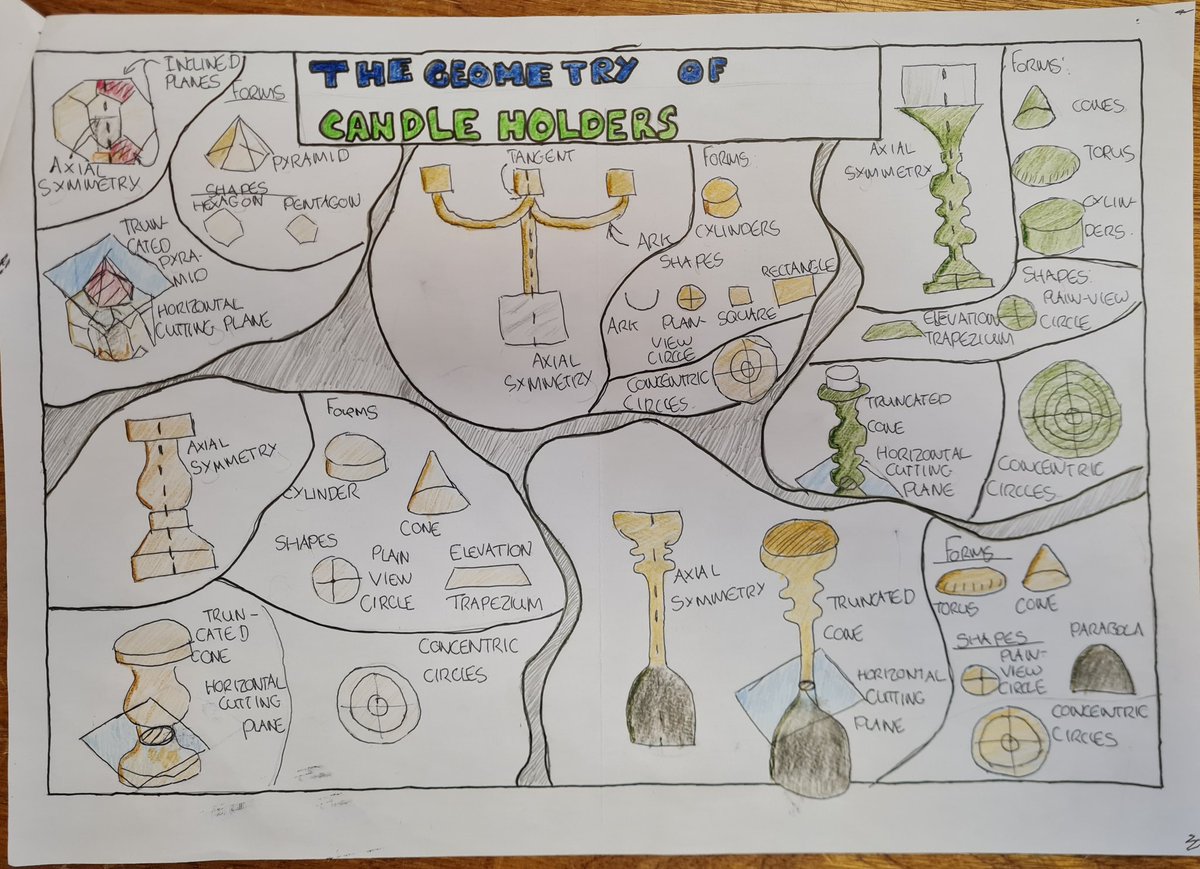 THE GEOMETRY OF
CANDLE HOLDERS
INCLINED
PLANES
AXIAL
SYMMETRY
FORMS
PYRAMID
SHAPES
HEXAGON PENTAGON
TRUN-
CATED
PYRA-
MID
HORIZONTAL
CUTTING PLANE
TANGENT
ARK
AXIAL
SYMMETRY
FORMS:
CYLINDERS
SHAPES
RECTANGLE
ARK PLAIN- SQUARE
VIEW
CIRCLE
CONCENTRIC
CIRCLES
AXIAL
SYMMETRY
FORMS:
CONES
TORUS
CYLIN-
DERS.
SHAPES:
PLAIN-VIEW
CIRCLE
ELEVATION
TRAPEZIUM
TRUNCATED
CONE
HORIZONTAL
CUTTING
PLANE
CONCENTRIC
CIRCLES
AXIAL
SYMMETRY
FORMS
CYLINDER
CONE
SHAPES
PLAIN
VIEW
CIRCLE
ELEVATION
TRAPEZIUM
TRUN-
CATED
CONE
HORIZONTAL
CUTTING
PLANE
CONCENTRIC
CIRCLES
AXIAL
SYMMETRY
TRUNCATED
CONE
HORIZONTAL
CUTTING
PLANE
FORMS
TORUS CONE
SHAPES
PLAIN-
VIEW
CIRCLE
PARABOLA
CONCENTRIC
CIRCLES